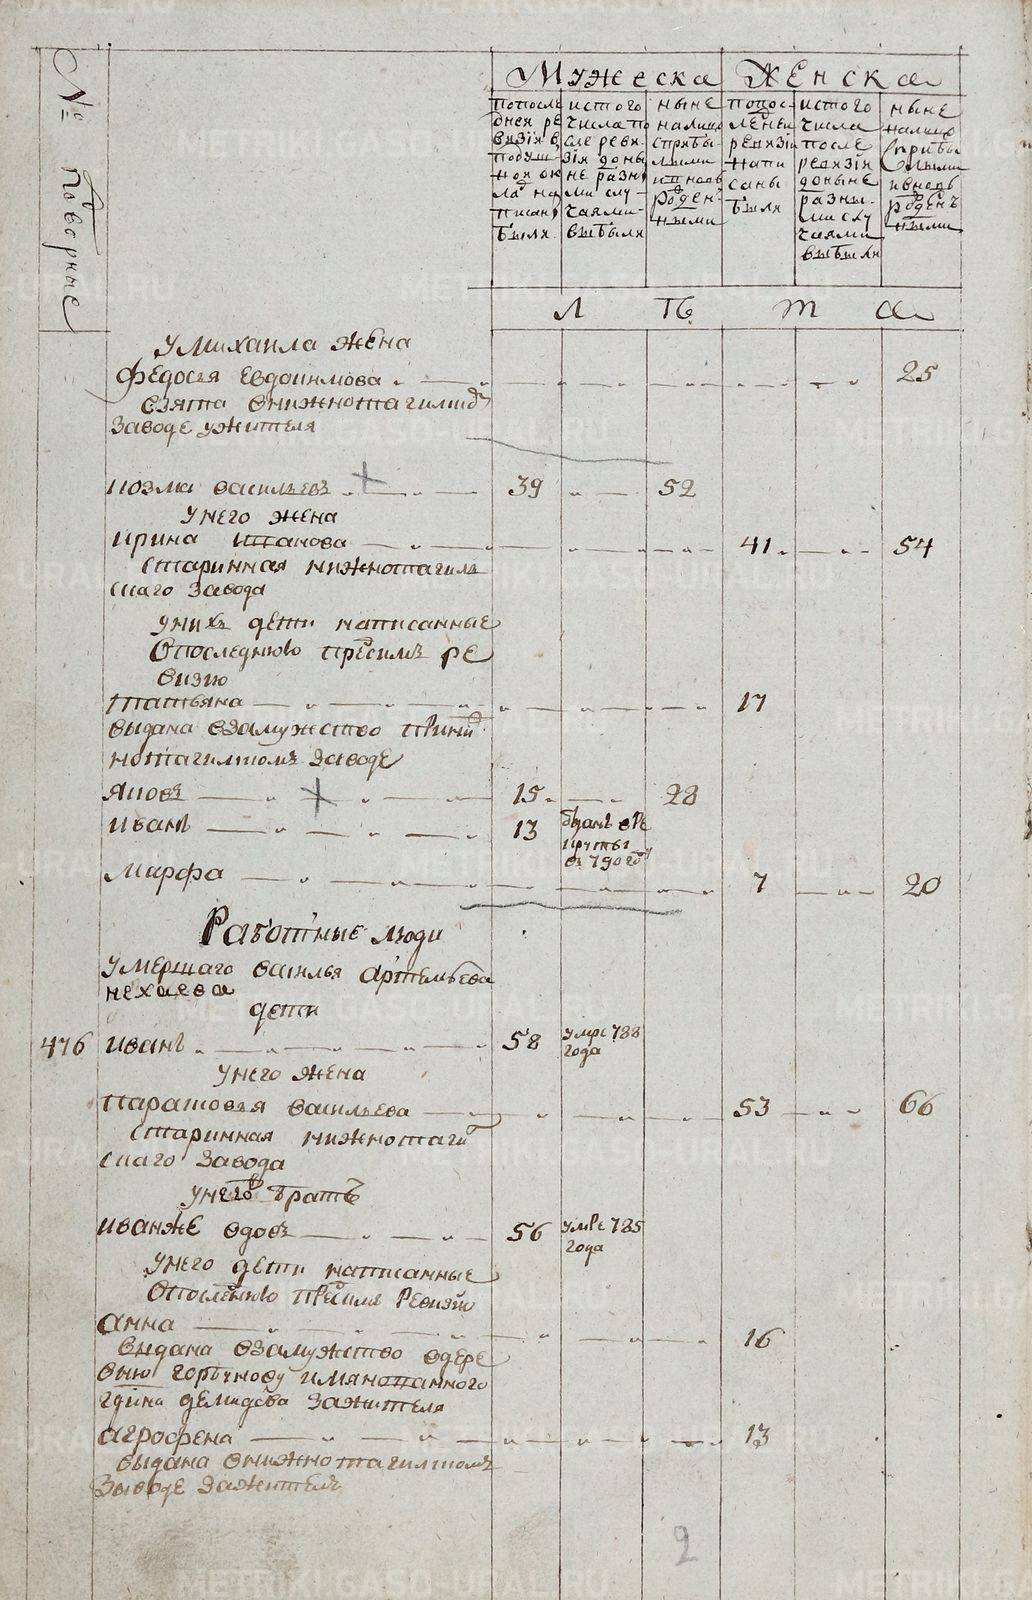 № поворные
Мужеска
Женска
попосле
дней ре
визiи в
подуш-
ной ок
ла на
писан
были
истого
числа по
сле реви-
зiи доны
не разн
ми слу-
чаями
выбыли
ныне
налицо
сприбы-
лыми
ивновь
рожден-
ными
попос-
ледней
ревизiи
напи
саны
были
истого
числа
после
ревизiи
доныне
разны-
ми слу
чаями
выбыли
ныне
налицо
сприбы
лыми
ивновь
рожденъ
ными
Л Ѣ т а
У михаила жена
федосья евдокимова 25
взята внижнотагилско
заводе ужителя
козма васильевъ 39 52
Унего жена
ирина иванова 41 54
старинная нижнотагилъ
скаго завода
унихъ дети написанные
впоследнюю пресимъ ре
визию
татьяна 17
выдана взамужство приниж
нотагилскомъ заводе
яковъ 15 28
иванъ 13
зданъ вре
круты
въ 790 году
марфа 7 20
Работные люди
умершаго василья артемьева
нехаева
дети
476 иванъ 58 умре 788
года
унего жена
парасковья васильева 53 66
старинная нижнотаги
скаго завода
унего братъ
иванже вдовъ 56 умре 785
года
унего дети написанные
впоследнюю пресимъ ревизию
анна 16
выдана взамужство вдере
вню
гдина демидова зажителя
агрофена 13
выдана внижнотагилскомъ
заводе зажителъ
2
METRIKI.GASO-URAL.RU